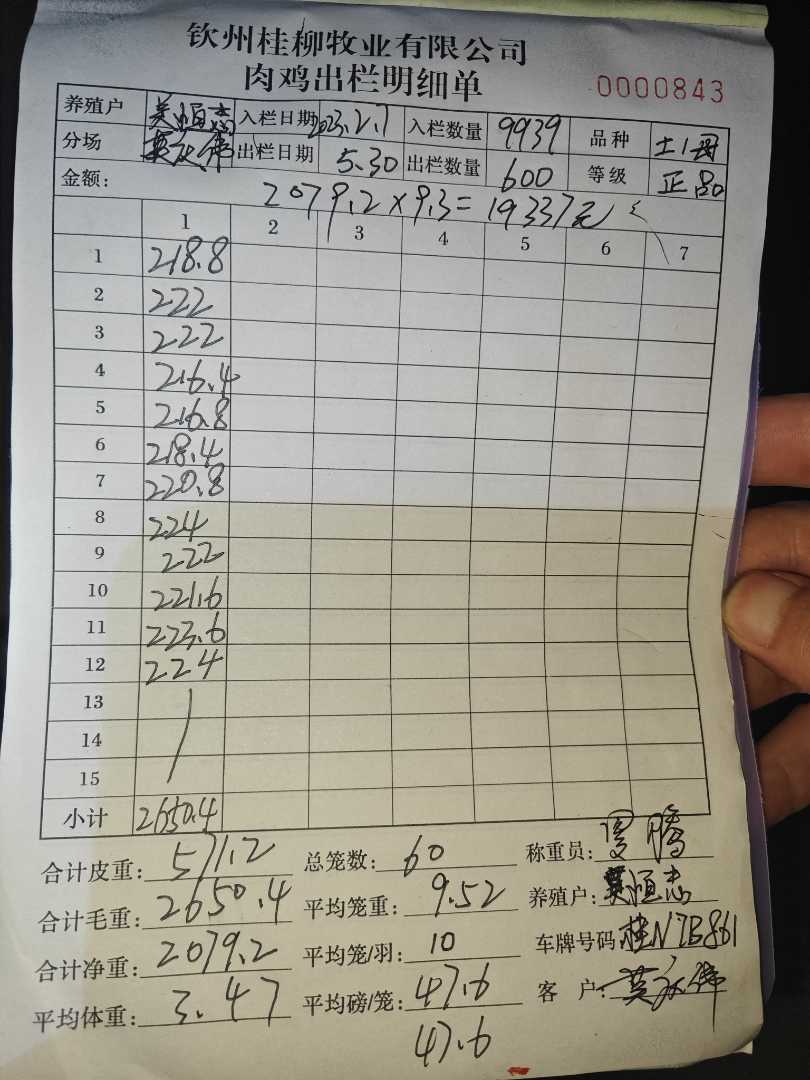 钦州桂柳牧业有限公司
肉鸡出栏明细单 0000843
养殖户 恒志 入栏日期 2023.2.7 入栏数量 9939 品种 土1号
分场 出栏日期 5.30 出栏数量 600 等级 正品
金额: 2079.2×9.3=19337元
1 2 3 4 5 6 7
1 218.8
2 222
3 222
4 216.4
5 216.8
6 218.4
7 220.8
8 224
9 222
10 221.6
11 223.6
12 224
13
14
15
小计 2650.4
合计皮重: 571.2 总笼数: 60 称重员: 腾
合计毛重: 2650.4 平均笼重: 9.52 养殖户: 恒志
合计净重: 2079.2 平均笼/羽: 10 车牌号码: 桂N7B861
平均体重: 3.47 平均磅/笼: 47.6 客 户:
47.6